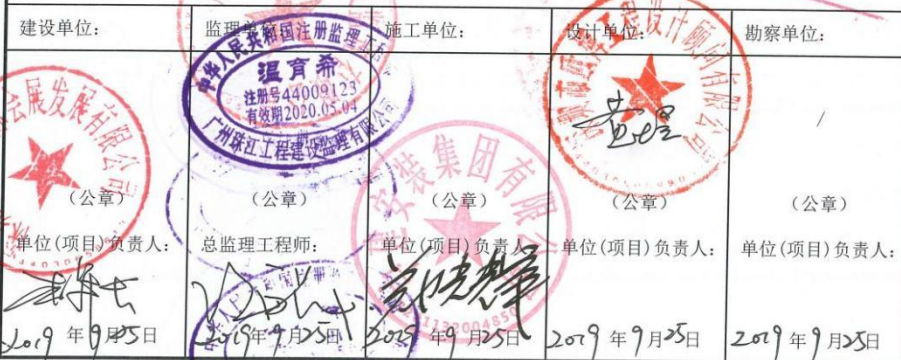 建设单位:
监理单位:
施工单位:
设计单位:
勘察单位:
中华人民共和国注册监理工程师
温育希
注册号44009123
有效期2020.05.04
广州珠江工程建设监理有限公司
会展发展有限公司
安装集团有限公司
工程设计顾问有限公司
/
(公章)
(公章)
(公章)
(公章)
(公章)
单位(项目)负责人:
总监理工程师:
单位(项目)负责人:
单位(项目)负责人:
单位(项目)负责人:
2019年9月25日
2019年9月25日
2019年9月25日
2019年9月25日
2019年9月25日